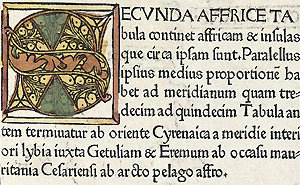 SECVNDA AFFRICE TA
bula continet affricam & insulas
que circa ipsam sunt. Paralellus
ipsius medius proportionē ha
bet ad meridianum quam tre
decim ad quindecim Tabula au
tem terminatur ab oriente Cyrenaica a meridie interi
ori lybia iuxta Getuliam & Eremum ab occasu mau
ritania Cesariensi ab arcto pelago affro.